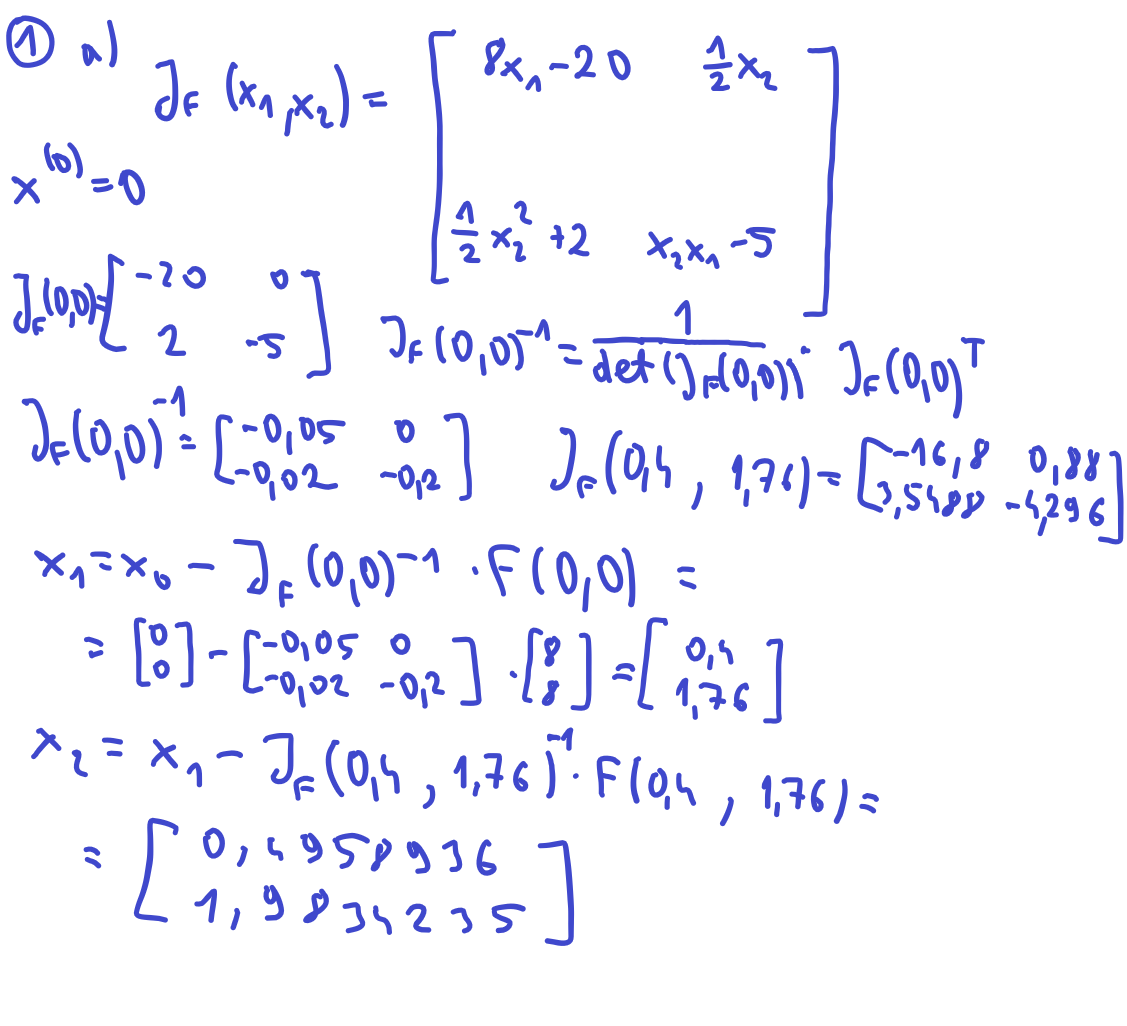 ① a) J_F (x_1, x_2) = [ 8x_1 - 20   1/2 x_2
1/2 x_2^2 + 2   x_2 x_1 - 5 ]
x^(0) = 0
J_F(0,0) = [ -20   0
2   -5 ]
J_F(0,0)^-1 = 1 / det(J_F(0,0)) · J_F(0,0)^T
J_F(0,0)^-1 = [ -0,05   0
-0,02   -0,2 ]
J_F(0,4 , 1,76) = [ -16,8   0,88
3,5488   -4,296 ]
x_1 = x_0 - J_F(0,0)^-1 · F(0,0) =
= [ 0
0 ] - [ -0,05   0
-0,02   -0,2 ] · [ 8
8 ] = [ 0,4
1,76 ]
x_2 = x_1 - J_F(0,4 , 1,76)^-1 · F(0,4 , 1,76) =
= [ 0,4958936
1,9834235 ]